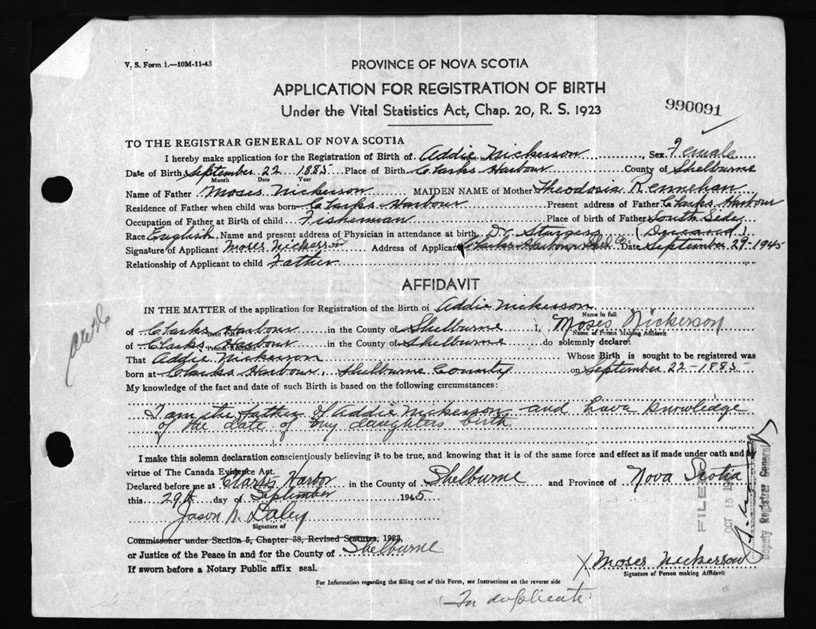 V. S. Form 1.—10M-11-43
PROVINCE OF NOVA SCOTIA
APPLICATION FOR REGISTRATION OF BIRTH
Under the Vital Statistics Act, Chap. 20, R. S. 1923
990091
TO THE REGISTRAR GENERAL OF NOVA SCOTIA
I hereby make application for the Registration of Birth of Addie Nickerson, Sex Female
Date of Birth September 22 1885 Place of Birth Clarks Harbour County of Shelburne
Month Date Year
Name of Father Moses Nickerson MAIDEN NAME of Mother Theodosia Kennehan
Residence of Father when child was born Clarks Harbour Present address of Father Clarks Harbour
Occupation of Father at Birth of child Fisherman Place of birth of Father South Side
Race English Name and present address of Physician in attendance at birth Dr Sturgess (Deceased)
Signature of Applicant Moses Nickerson Address of Applicant Clarks Harbour Shel Co Date September 29-1945
Relationship of Applicant to child Father
AFFIDAVIT
IN THE MATTER of the application for Registration of the Birth of Addie Nickerson
Name in full
of Clarks Harbour in the County of Shelburne I, Moses Nickerson
Name of Person Making Affidavit
of Clarks Harbour in the County of Shelburne do solemnly declare:
That Addie Nickerson Whose Birth is sought to be registered was
born at Clarks Harbour, Shelburne County on September 22-1885
My knowledge of the fact and date of such Birth is based on the following circumstances:
I am the father of Addie Nickerson and have knowledge
of the date of my daughters birth
I make this solemn declaration conscientiously believing it to be true, and knowing that it is of the same force and effect as if made under oath and by
virtue of The Canada Evidence Act.
Declared before me at Clarks Harbor in the County of Shelburne and Province of Nova Scotia
this 29th day of September 1945
Jason N Daley
Signature of
Commissioner under Section 5, Chapter 38, Revised Statutes, 1923,
or Justice of the Peace in and for the County of Shelburne
If sworn before a Notary Public affix seal.
FILED
OCT 15
Deputy Registrar General
X Moses Nickerson
Signature of Person making Affidavit
For Information regarding the filling out of this Form, see Instructions on the reverse side
For duplicate